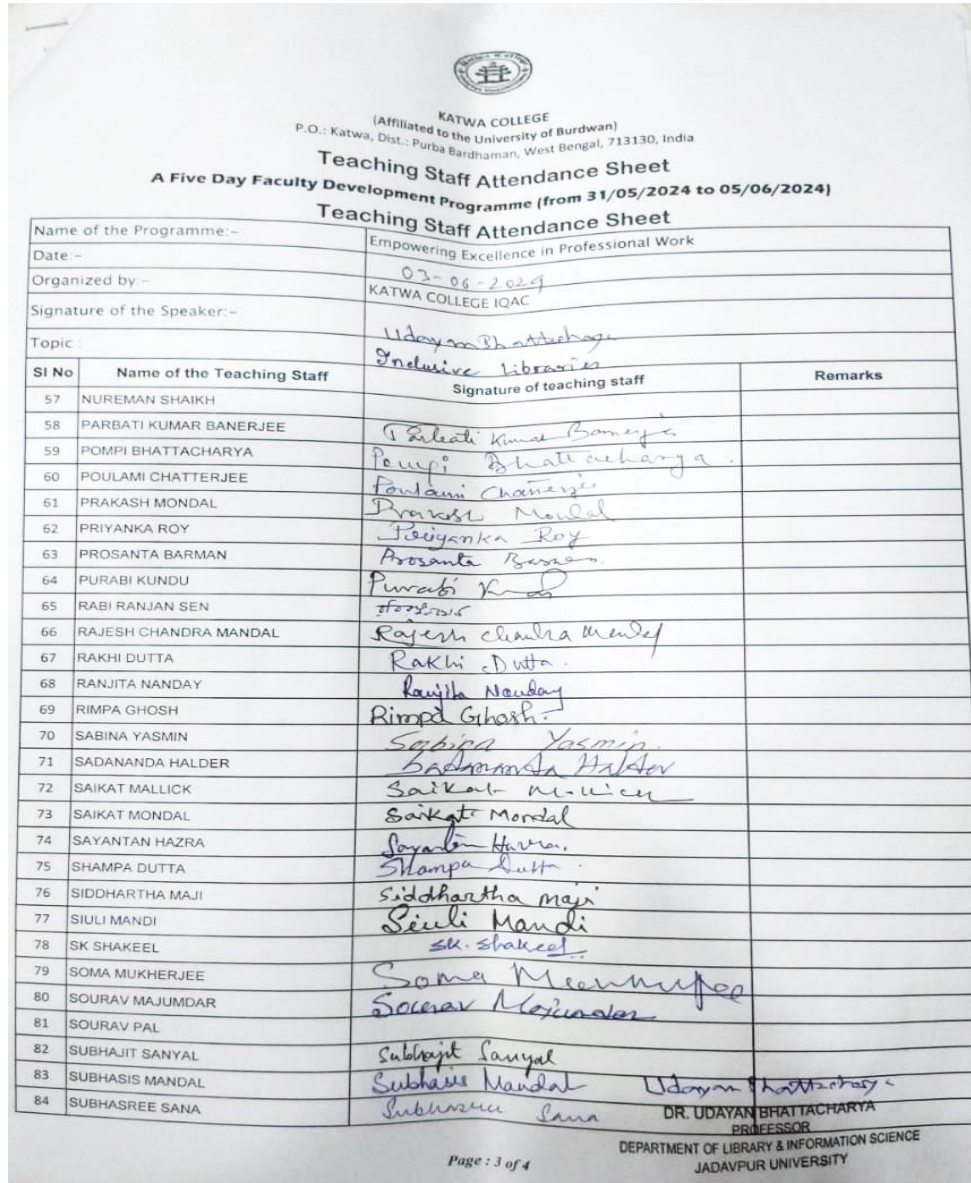 KATWA COLLEGE
(Affiliated to the University of Burdwan)
P.O.: Katwa, Dist.: Purba Bardhaman, West Bengal, 713130, India
Teaching Staff Attendance Sheet
A Five Day Faculty Development Programme (from 31/05/2024 to 05/06/2024)
Teaching Staff Attendance Sheet
Name of the Programme:- Empowering Excellence in Professional Work
Date:- 03-06-2024
Organized by:- KATWA COLLEGE IQAC
Signature of the Speaker:- Udayan Bhattacharya
Topic : Inclusive Libraries
Sl No Name of the Teaching Staff Signature of teaching staff Remarks
57 NUREMAN SHAIKH
58 PARBATI KUMAR BANERJEE Parbati Kumar Banerjee
59 POMPI BHATTACHARYA Pompi Bhattacharya.
60 POULAMI CHATTERJEE Poulami Chatterjee
61 PRAKASH MONDAL Prakash Mondal
62 PRIYANKA ROY Priyanka Roy
63 PROSANTA BARMAN Prosanta Barman.
64 PURABI KUNDU Purabi Kundu
65 RABI RANJAN SEN
66 RAJESH CHANDRA MANDAL Rajesh Chandra Mandal
67 RAKHI DUTTA Rakhi Dutta.
68 RANJITA NANDAY Ranjita Nanday
69 RIMPA GHOSH Rimpa Ghosh.
70 SABINA YASMIN Sabina Yasmin.
71 SADANANDA HALDER Sadananda Halder
72 SAIKAT MALLICK Saikat Mallick
73 SAIKAT MONDAL Saikat Mondal
74 SAYANTAN HAZRA Sayantan Hazra.
75 SHAMPA DUTTA Shampa Dutta.
76 SIDDHARTHA MAJI Siddhartha Maji
77 SIULI MANDI Siuli Mandi
78 SK SHAKEEL SK. Shakeel
79 SOMA MUKHERJEE Soma Mukherjee
80 SOURAV MAJUMDAR Sourav Majumdar
81 SOURAV PAL
82 SUBHAJIT SANYAL Subhajit Sanyal
83 SUBHASIS MANDAL Subhasis Mandal Udayan Bhattacharya
84 SUBHASREE SANA Subhasree Sana
DR. UDAYAN BHATTACHARYA
PROFESSOR
DEPARTMENT OF LIBRARY & INFORMATION SCIENCE
JADAVPUR UNIVERSITY
Page : 3 of 4